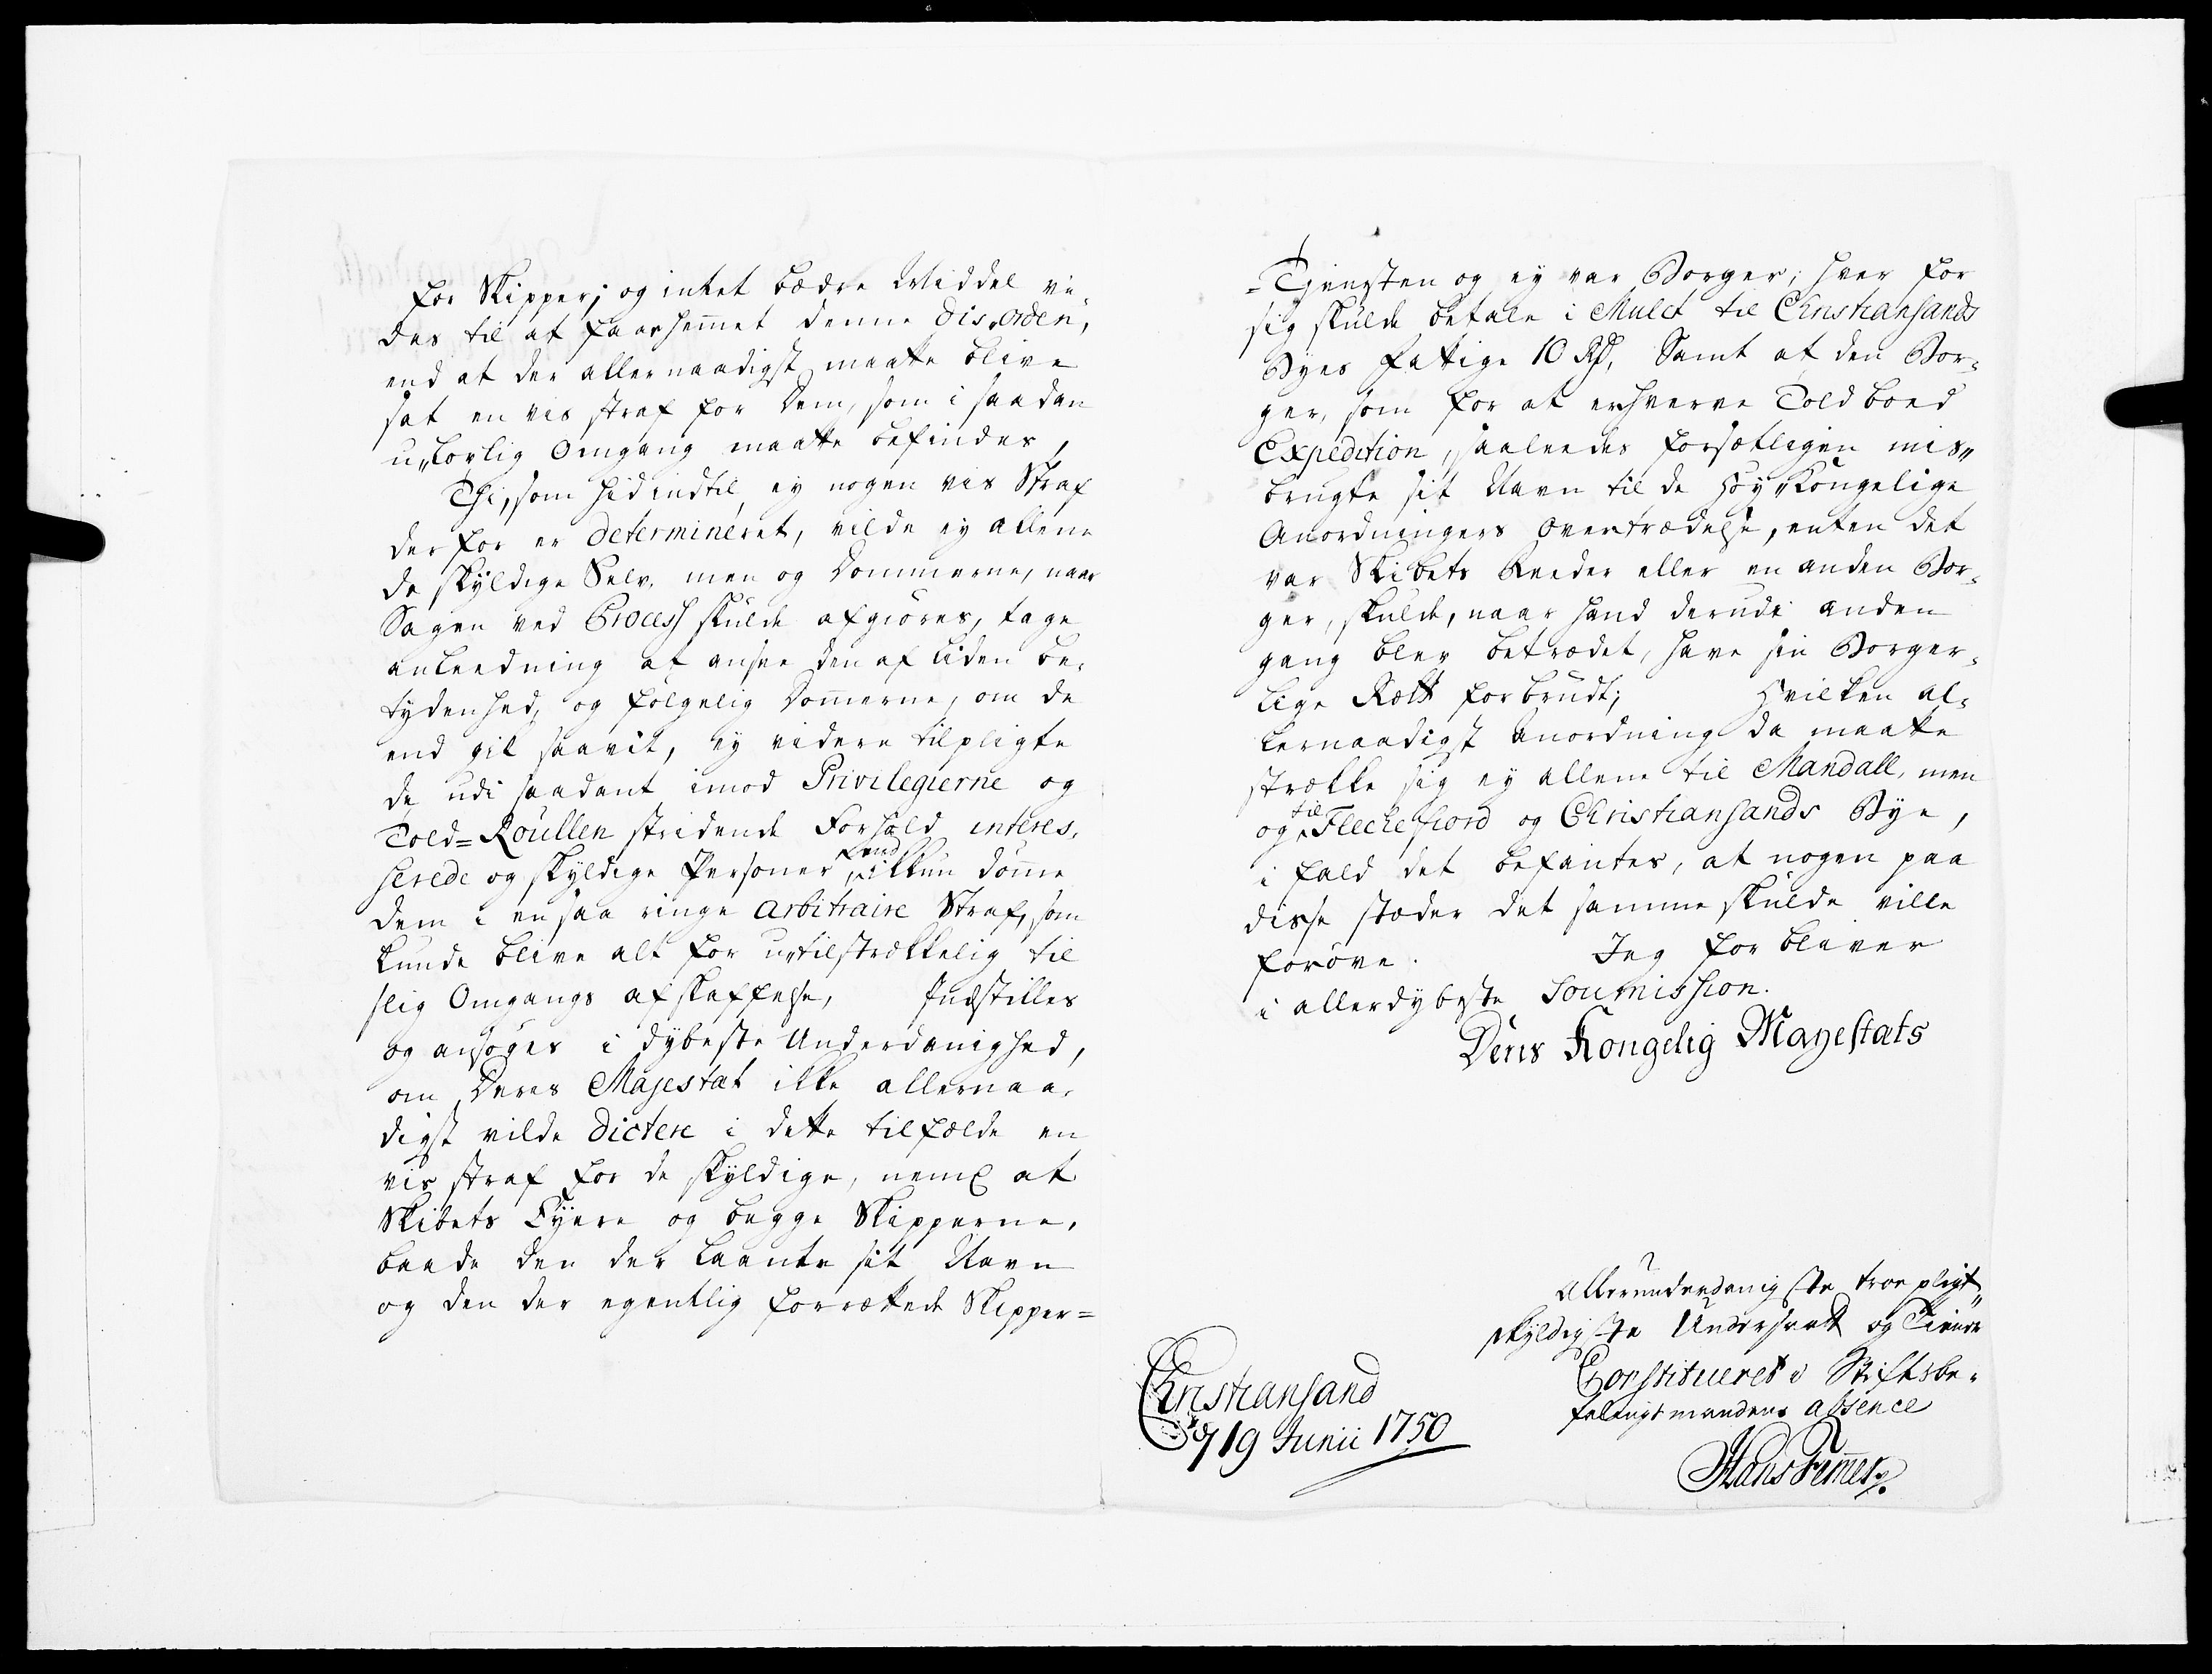 for Skipper; og intet bædre Middel vi-
des til at faae hemmet denne Dis-orden,
end at der allernaadigst maatte blive
sat en vis straf for Dem, som i saadan
u,,lovlig Omgang maatte befindes,
Thi, som hidindtil ey nogen vis Straf
derfor er determineret, vilde ey allene
de skyldige Selv, men og Dommerne, naar
Sagen ved Process skulde afgiøres, tage
anleedning at ansee den af liden be-
tydenhed, og følgelig Domerne, om de
end gik saavit, ey videre tilpligte
de udi saadant imod Privilegierne og
Told=Roullen stridende Forhold interes-
serede og skyldige Personer, end ikkun dømme
dem i en saa ringe arbitraire Straf, som
kunde blive alt for u,,tilstrækkelig til
slig Omgangs afskaffelse, Indstilles
og ansøges i dybeste Underdanighed,
om Deres Majestæt ikke allernaa-
digst vilde dictere i dette tilfælde en
vis straf for de skyldige, neml at
Skibets Eyere og begge Skipperne,
baade den der laante sit Navn
og den der egentlig forrættede Skipper=
=Tjenesten og ey var Borger; hver for
sig skulde betale i Mulct til Christiansands
Byes Fattige 10 Rd, Samt at den Bor-
ger, som for at erhverve Toldboed
Expedition, saaleedes forsætligen mis,,
brugte sit Navn til de Høy,,Kongelige
Anordningers Overtrædelse, enten det
var Skibets Reeder eller en anden Bor-
ger, skulde, naar hand derudi anden
gang blev betrædet, have sin Borger-
lige Rætt forbrudt; Hvilken al-
lernaadigst Anordning da maatte
strække sig ey allene til Mandall, men
og til Flechefiord og Christiansands Bye,
i fald det befantes, at nogen paa
disse stæder det samme skulde ville
forøve. Jeg forbliver
i allerdybeste Soumission.
Deris Kongelig Mayestæts
Allerunderdanigste troe pligt,,
skyldigste Undersaatt og Tienere
Constitueret i Stiftsbe-
falingsmandens absence
Hans Femer
Christiansand
d 19 Junii 1750